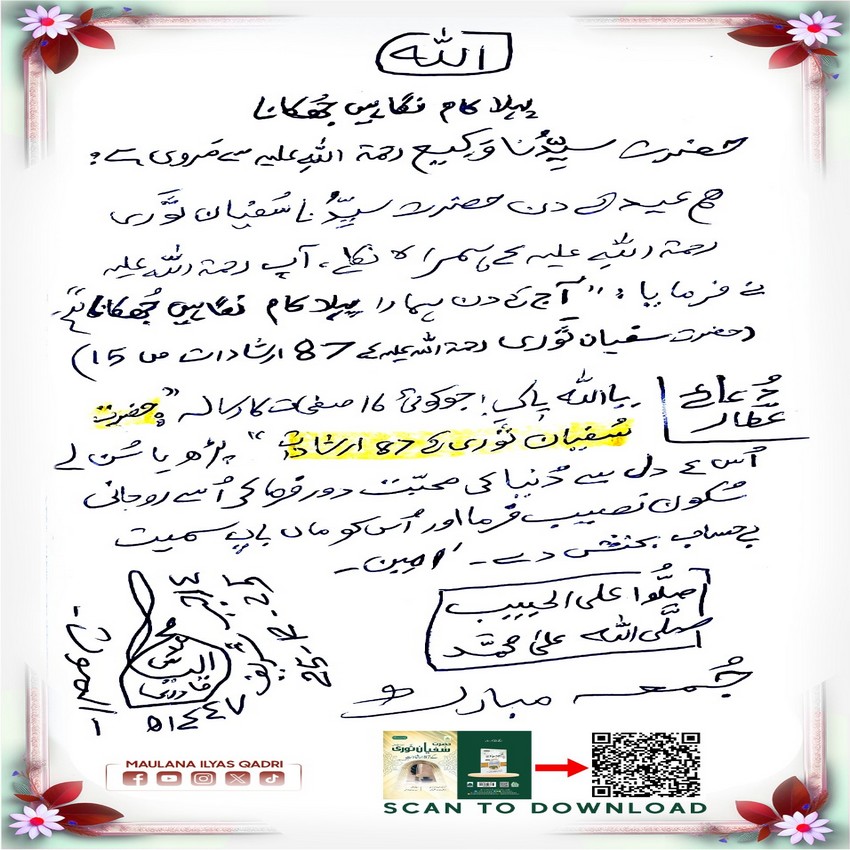 الله
پہلا کام نگاہیں جُھکانا
حضرت سیِّدُنا وَکیع رحمۃ اللہ علیہ سے مَروی ہے:
ہم عید کے دن حضرت سیِّدُنا سُفیان ثَوری
رحمۃ اللہ علیہ کے ہمراہ نکلے، آپ رحمۃ اللہ علیہ
نے فرمایا: "آج کے دن ہمارا پہلا کام نگاہیں جُھکانا ہے۔"
(حضرت سفیان ثَوری رحمۃ اللہ علیہ کے 87 ارشادات ص 15)
دُعائے عطّار
یا اللہ پاک! جو کوئی 17 صفحات کا رسالہ "حضرت
سُفیان ثَوری کے 87 ارشادات" پڑھ یا سُن لے
اُس کے دل سے دُنیا کی محبّت دور فرما کر اُسے روحانی
سُکون نصیب فرما اور اُس کو ماں باپ سمیت
بے حساب بخش دے۔ اٰمین۔
صلُّوا علی الحبیب
صلَّی اللہ علیٰ محمَّد
جُمعہ مبارک
محمد الیاس قادری
۱٤٤٧ھ
MAULANA ILYAS QADRI
SCAN TO DOWNLOAD